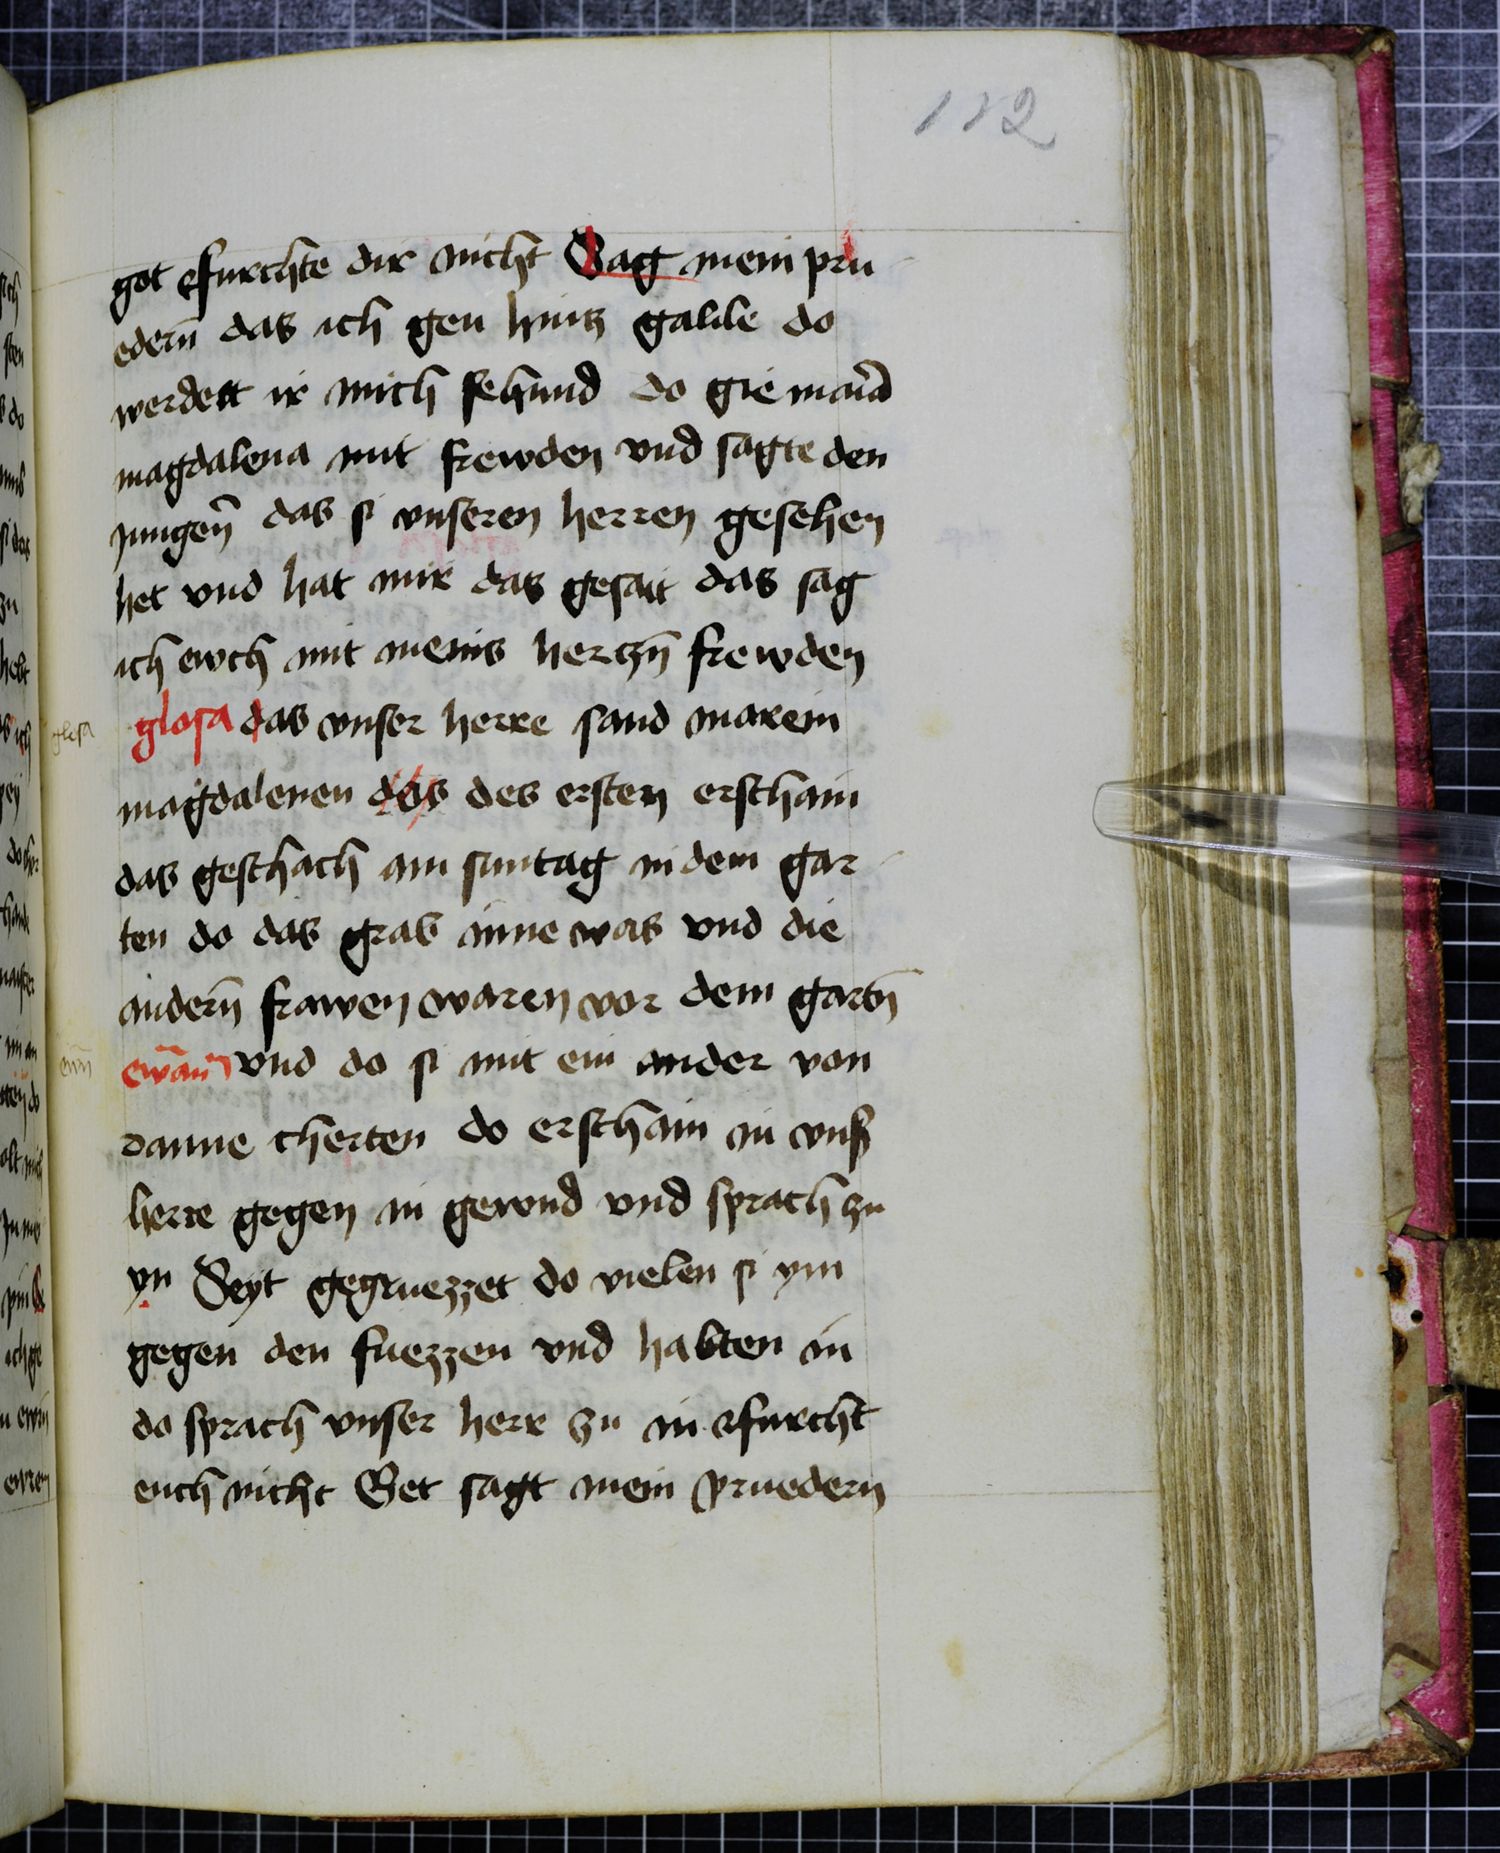 112
got efurchte dir nicht Sag mein pru
edern̄ das ich gen hintz galile do
werdett ir mich sehund do gie maria
magdalena mit frewden vnd sagte den
jungen̄ das si vnseren herren gesehen
het vnd hat mir das gesait das sag
ich ewch mit meins hertzn̄ frewden
glosa das vnser herre sand marein
magdalenen das des ersten erschain
das geschach am suntag in dem gar
ten do das grab inne was vnd die
andern̄ frawen waren vor dem gartn̄
ewan̄ vnd do si mit ein ander von
danne cherten do erschain in vnß
herre gegen in gewnd vnd sprach zu
yn Seyt gegruezzet do vielen si ym
gegen den fuezzen vnd habten in
do sprach vnser herr zu in efurcht
euch nicht Get sagt mein pruedern
glosa
ewn̄